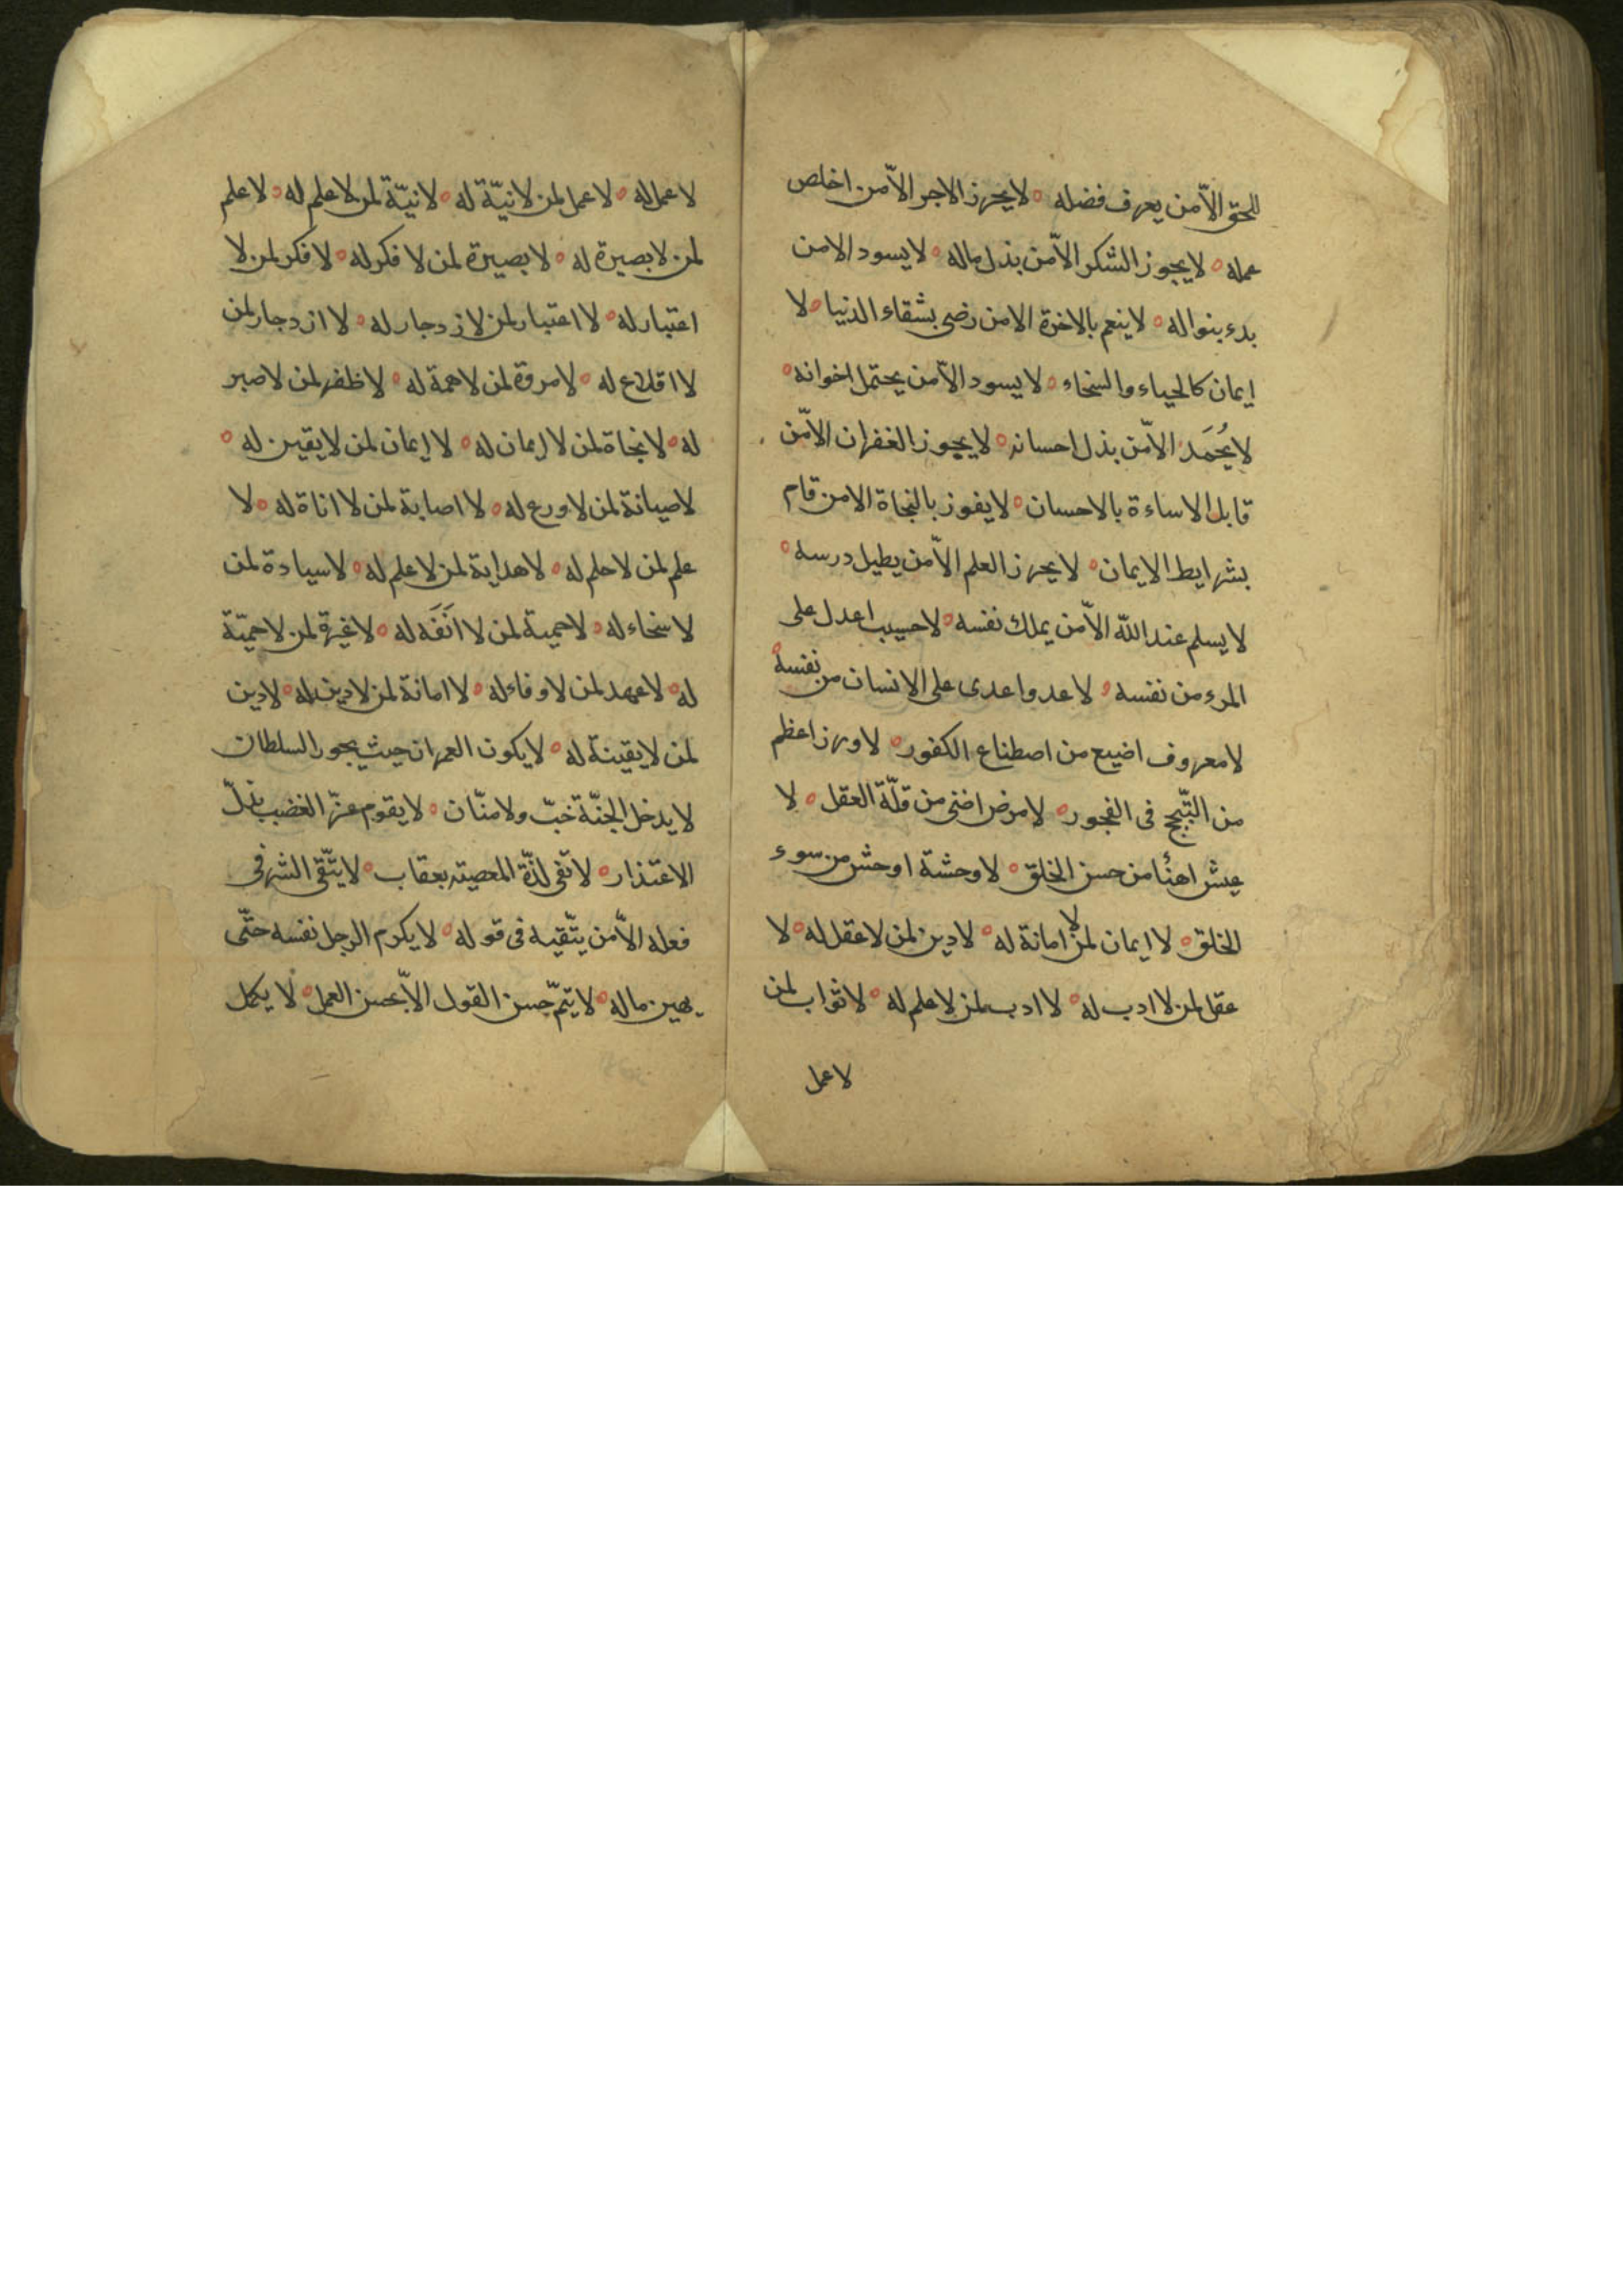 للحق الّا من يعرف فضله ٥ لا يحرز الاجر الّا من اخلص
عمله ٥ لا يجوز الشكر الّا من بذل ماله ٥ لا يسود الا من
بدء بنواله ٥ لا ينعم بالاخرة الا من رضى بشقاء الدنيا ٥ لا
إيمان كالحياء والسخاء ٥ لا يسود الّا من يحتمل اخوانه ٥
لا يُحمَد الّا من بذل احسانه ٥ لا يجوز الغفران الّا من
قابل الاساءة بالاحسان ٥ لا يفوز بالنجاة الا من قام
بشرايط الايمان ٥ لا يحرز العلم الّا من يطيل درسه ٥
لا يسلم عند اللّه الّا من يملك نفسه ٥ لا حسيب اعدل على
المرء من نفسه ٥ لا عدو اعدى على الانسان من نفسه ٥
لا معروف اضيع من اصطناع الكفور ٥ لا وزر اعظم
من التبّجح فى الفجور ٥ لا مرض اضنى من قلّة العقل ٥ لا
عيش اهنأ من حسن الخلق ٥ لا وحشة اوحش من سوء
الخلق ٥ لا ايمان لمن لا امانة له ٥ لا دين لمن لا عقل له ٥ لا
عقل لمن لا ادب له ٥ لا ادب لمن لا علم له ٥ لا ثواب لمن
لا عمل
لا عمل له ٥ لا عمل لمن لا نيّة له ٥ لا نيّة لمن لا علم له ٥ لا علم
لمن لا بصيرة له ٥ لا بصيرة لمن لا فكر له ٥ لا فكر لمن لا
اعتبار له ٥ لا اعتبار لمن لا ازدجار له ٥ لا ازدجار لمن
لا اقلاع له ٥ لا مروة لمن لا همة له ٥ لا ظفر لمن لا صبر
له ٥ لا نجاة لمن لا إيمان له ٥ لا إيمان لمن لا يقين له ٥
لا صيانة لمن لا ورع له ٥ لا اصابة لمن لا اناة له ٥ لا
علم لمن لا حلم له ٥ لا هداية لمن لا علم له ٥ لا سيادة لمن
لا سخاء له ٥ لا حمية لمن لا انَفَه له ٥ لا غيرة لمن لا حميّة
له ٥ لا عهد لمن لا وفاء له ٥ لا امانة لمن لا دين له ٥ لا دين
لمن لا يقينة له ٥ لا يكون العمران حيث يجور السلطان
لا يدخل الجنّة خبّ ولا منّان ٥ لا يقوم عزّ الغضب بذلّ
الاعتذار ٥ لا تفى لذّة المعصيته بعقاب ٥ لا يتّقى الشر فى
فعله الّا من يتّقيه فى قوله ٥ لا يكرم الرجل نفسه حتّى
يهين ماله ٥ لا يتمّ حسن القول الّا بحسن العمل ٥ لا يكمل